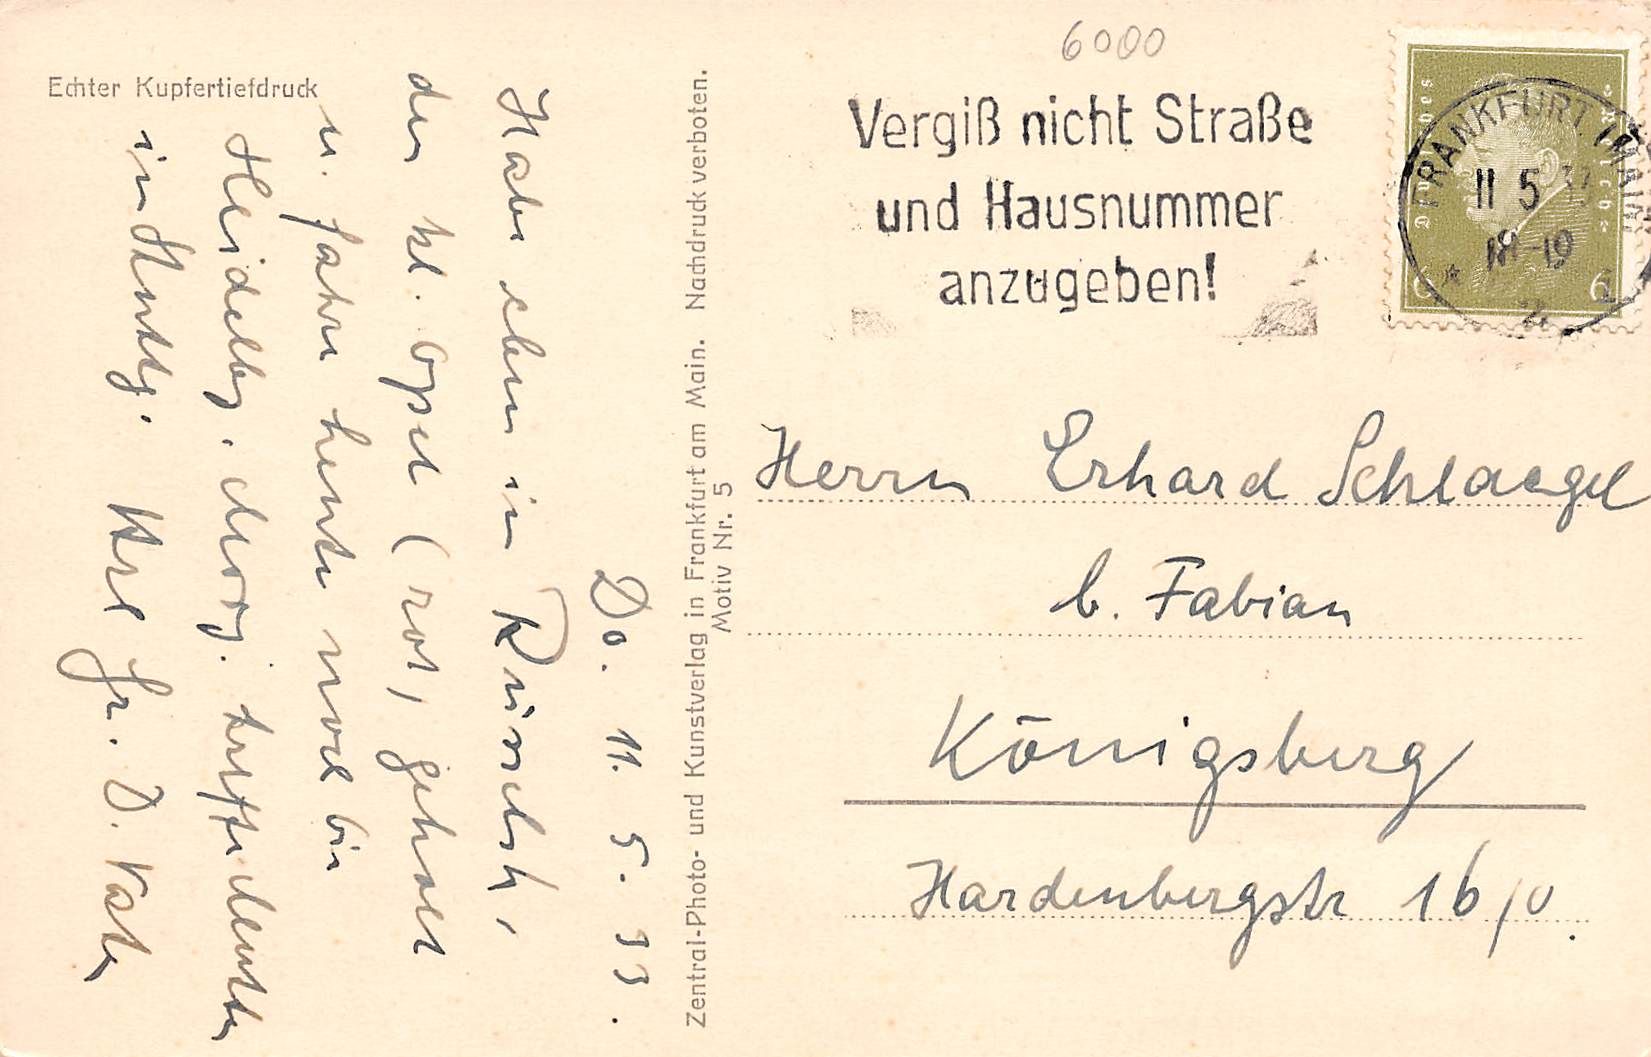 Echter Kupfertiefdruck
Do. 11. 5. 33.
Habe eben in Rüsselsh,
den kl. Opel (rot, geholt
u. fahre heute noch bis
Heidelbg. Morg. treffe
in Stuttg. Hrl Gr. D. Vater
Zentral-Photo- und Kunstverlag in Frankfurt am Main. Nachdruck verboten.
Motiv Nr. 5
6000
Vergiß nicht Straße
und Hausnummer
anzugeben!
Deutsches Reich
FRANKFURT (MAIN)
11 5 33
18-19
2
6 6
Herrn Erhard Schlaegel
b. Fabian
Königsberg
Hardenbergstr 16/0.